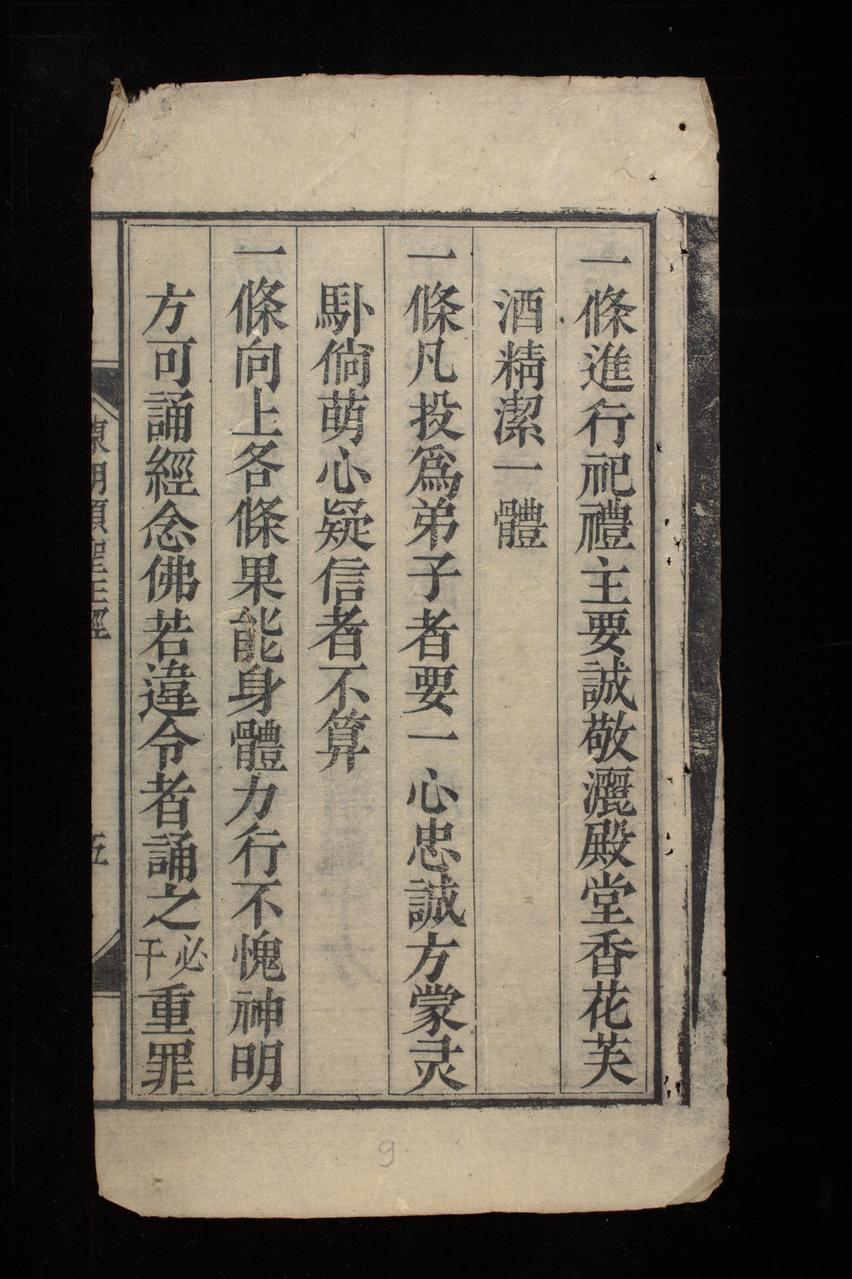 一條進行祀禮主要誠敬灑殿堂香花芙
酒精潔一體
一條凡投爲弟子者要一心忠誠方蒙灵
馱倘萌心疑信者不算
一條向上各條果能身體力行不愧神明
方可誦經念佛若違令者誦之必干重罪
聖
經
五
9